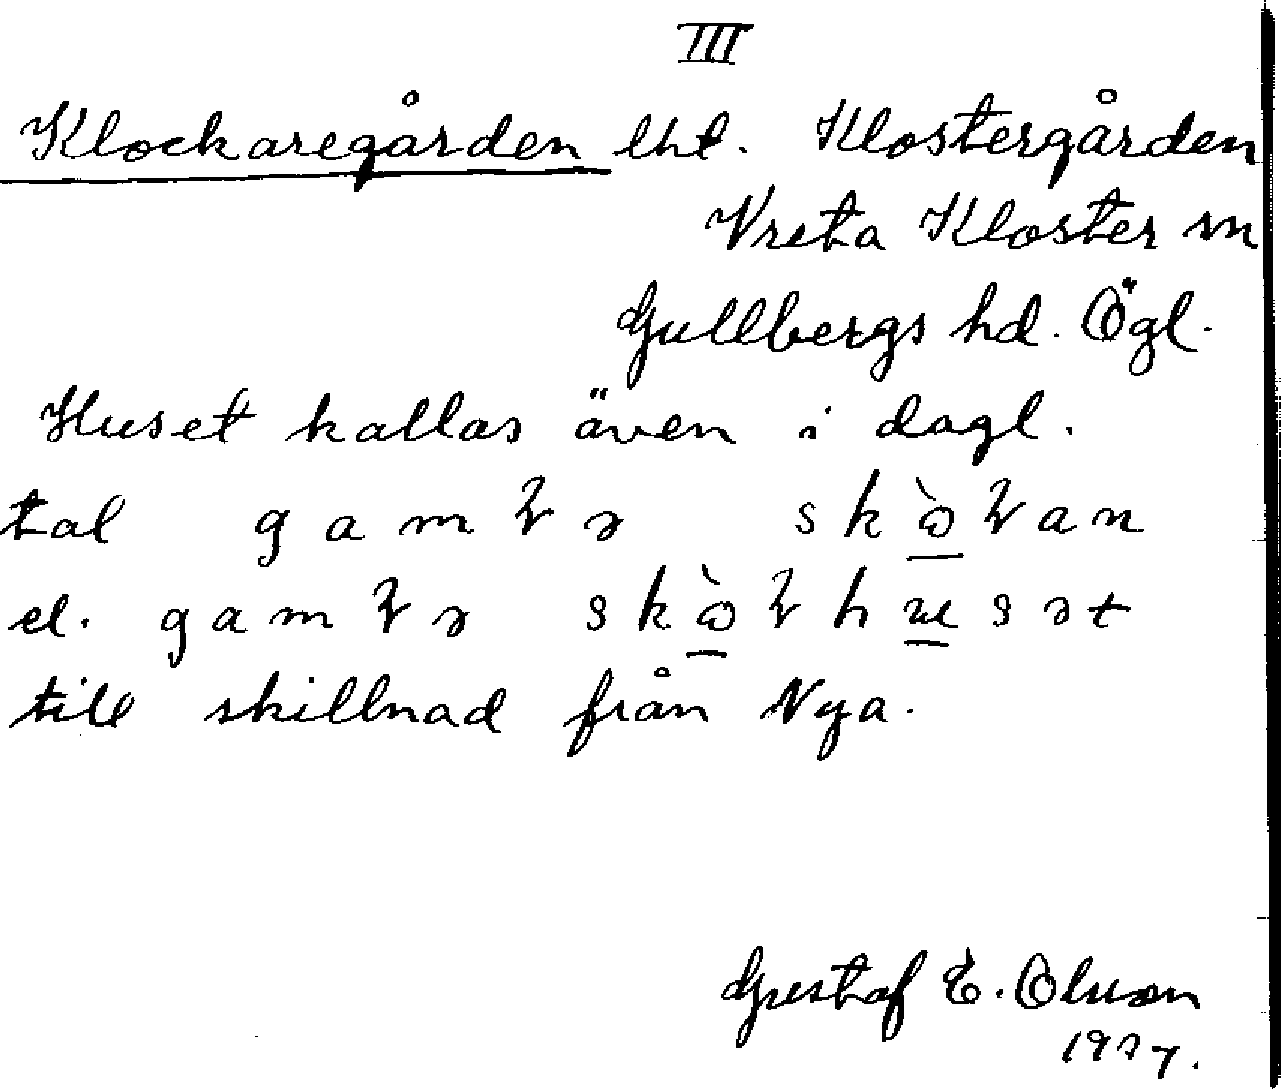 III
Klockaregården lht. Klostergården
Vreta Kloster sn
Gullbergs hd. Ögl.
Huset kallas även i dagl.
tal gamɫə skò̠ɫan
el. gamɫə skò̠ɫhu̠sət
till skillnad från Nya.
Gustaf E. Olsson
1927.